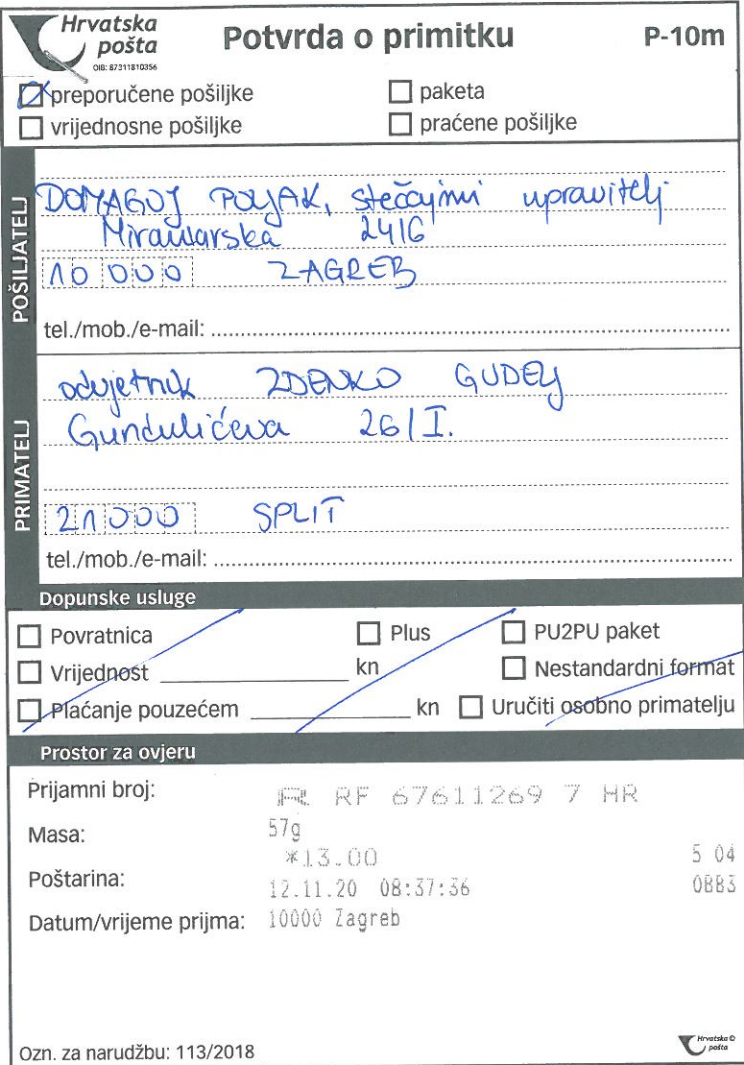 Hrvatska pošta
OIB: 87311810356
Potvrda o primitku
P-10m
preporučene pošiljke
paketa
vrijednosne pošiljke
praćene pošiljke
POŠILJATELJ
DOMAGOJ POLJAK, stečajni upravitelj
Miramarska 24/6
10 000 ZAGREB
tel./mob./e-mail:
PRIMATELJ
odvjetnik ZDENKO GUDELJ
Gundulićeva 26/I.
21000 SPLIT
tel./mob./e-mail:
Dopunske usluge
Povratnica
Plus
PU2PU paket
Vrijednost kn
Nestandardni format
Plaćanje pouzećem kn
Uručiti osobno primatelju
Prostor za ovjeru
Prijamni broj: R RF 67611269 7 HR
Masa: 57g
*13.00 5 04
Poštarina: 12.11.20 08:37:36 0883
Datum/vrijeme prijma: 10000 Zagreb
Ozn. za narudžbu: 113/2018
Hrvatska pošta